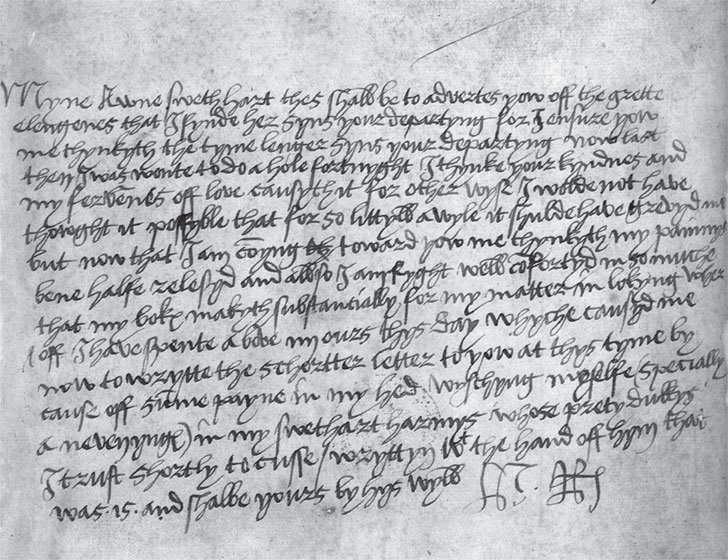 Myne Awne swethhart thes shall be to advertes yow off the grette
elengenes that I fynde her syns your departyng for I ensure yow
me thynkyth the tyme lenger syns your departyng now last
then I was wonte to do a hole fortnyght I thynke your kyndnes and
my fervenes off love causyth it for other wyse I wolde not have
thowght it possyble that for so littyll a wyle it shulde have grevyd me
but now that I am comyng toward yow me thynkyth my painnys
bene halfe relesyd and allso I am ryght well coforttyd in so muche
that my boke makyth substancially for my matter in lokyng wher
off I have spente a bove iiii ours thys day whyche causyd me
now to wrytte the schortter letter to yow at thys tyme by
cause off summe payne in my hed wyschyng my selfe (specially
a nevenyng) in my swethart harmys whose prety dukkys
I trust shortly to cusse / wryttyn wt the hand off hym that
was . is . and shalbe yours by hys wyll H. R